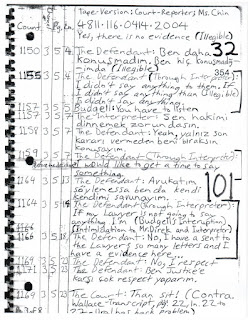 Tape-Version: Court-Reporter, Ms. Chin
Count Pg. Ln
4811-116-0414-2004
Yes, there is no evidence (illegible)
1150 3 5 4 The Defendant: Ben daha 32
konuşmadim. Ben hiç konuşmadi-
mda (illegible) 35A
1155 3 5 6 The Defendant (Through Interpreter):
I didn't say anything to them. If
I didn't say anything than (illegible)
I didn't say anything
1157 3 5 5 Budget: You have to listen
1157 3 5 7 The Interpreter: Sen hakimi
dinlemek zorundasin.
1158 3 5 7 The Defendant: Yeah, yalniz son
karari vermeden beni biraksin
konuşayim.
1159 3 5 The Defendant (Through Interpreter):
would like to get a time to say
something. 101
1164 3 5 13 The Defendant: Avukatim
söylemessa ben de kendi
kendimi savunayim.
1164 3 5 The Defendant (Through Interpreter):
If my Lawyer is not going to say
anything I'm (Budget's Interruption,
(Intimidation to Mr. Direk and Interpreter)
1166 3 5 18 The Defendant: No, I have a sent to
the Lawyer so many letters and I
have a evidence here...
1168 3 5 21 The Defendant: No, I respect
1171 3 5 23 The Defendant: Ben Justice'e
karşi çok respect yaparim.
1169 3 5 23 The Court: Than sit! (Contra.